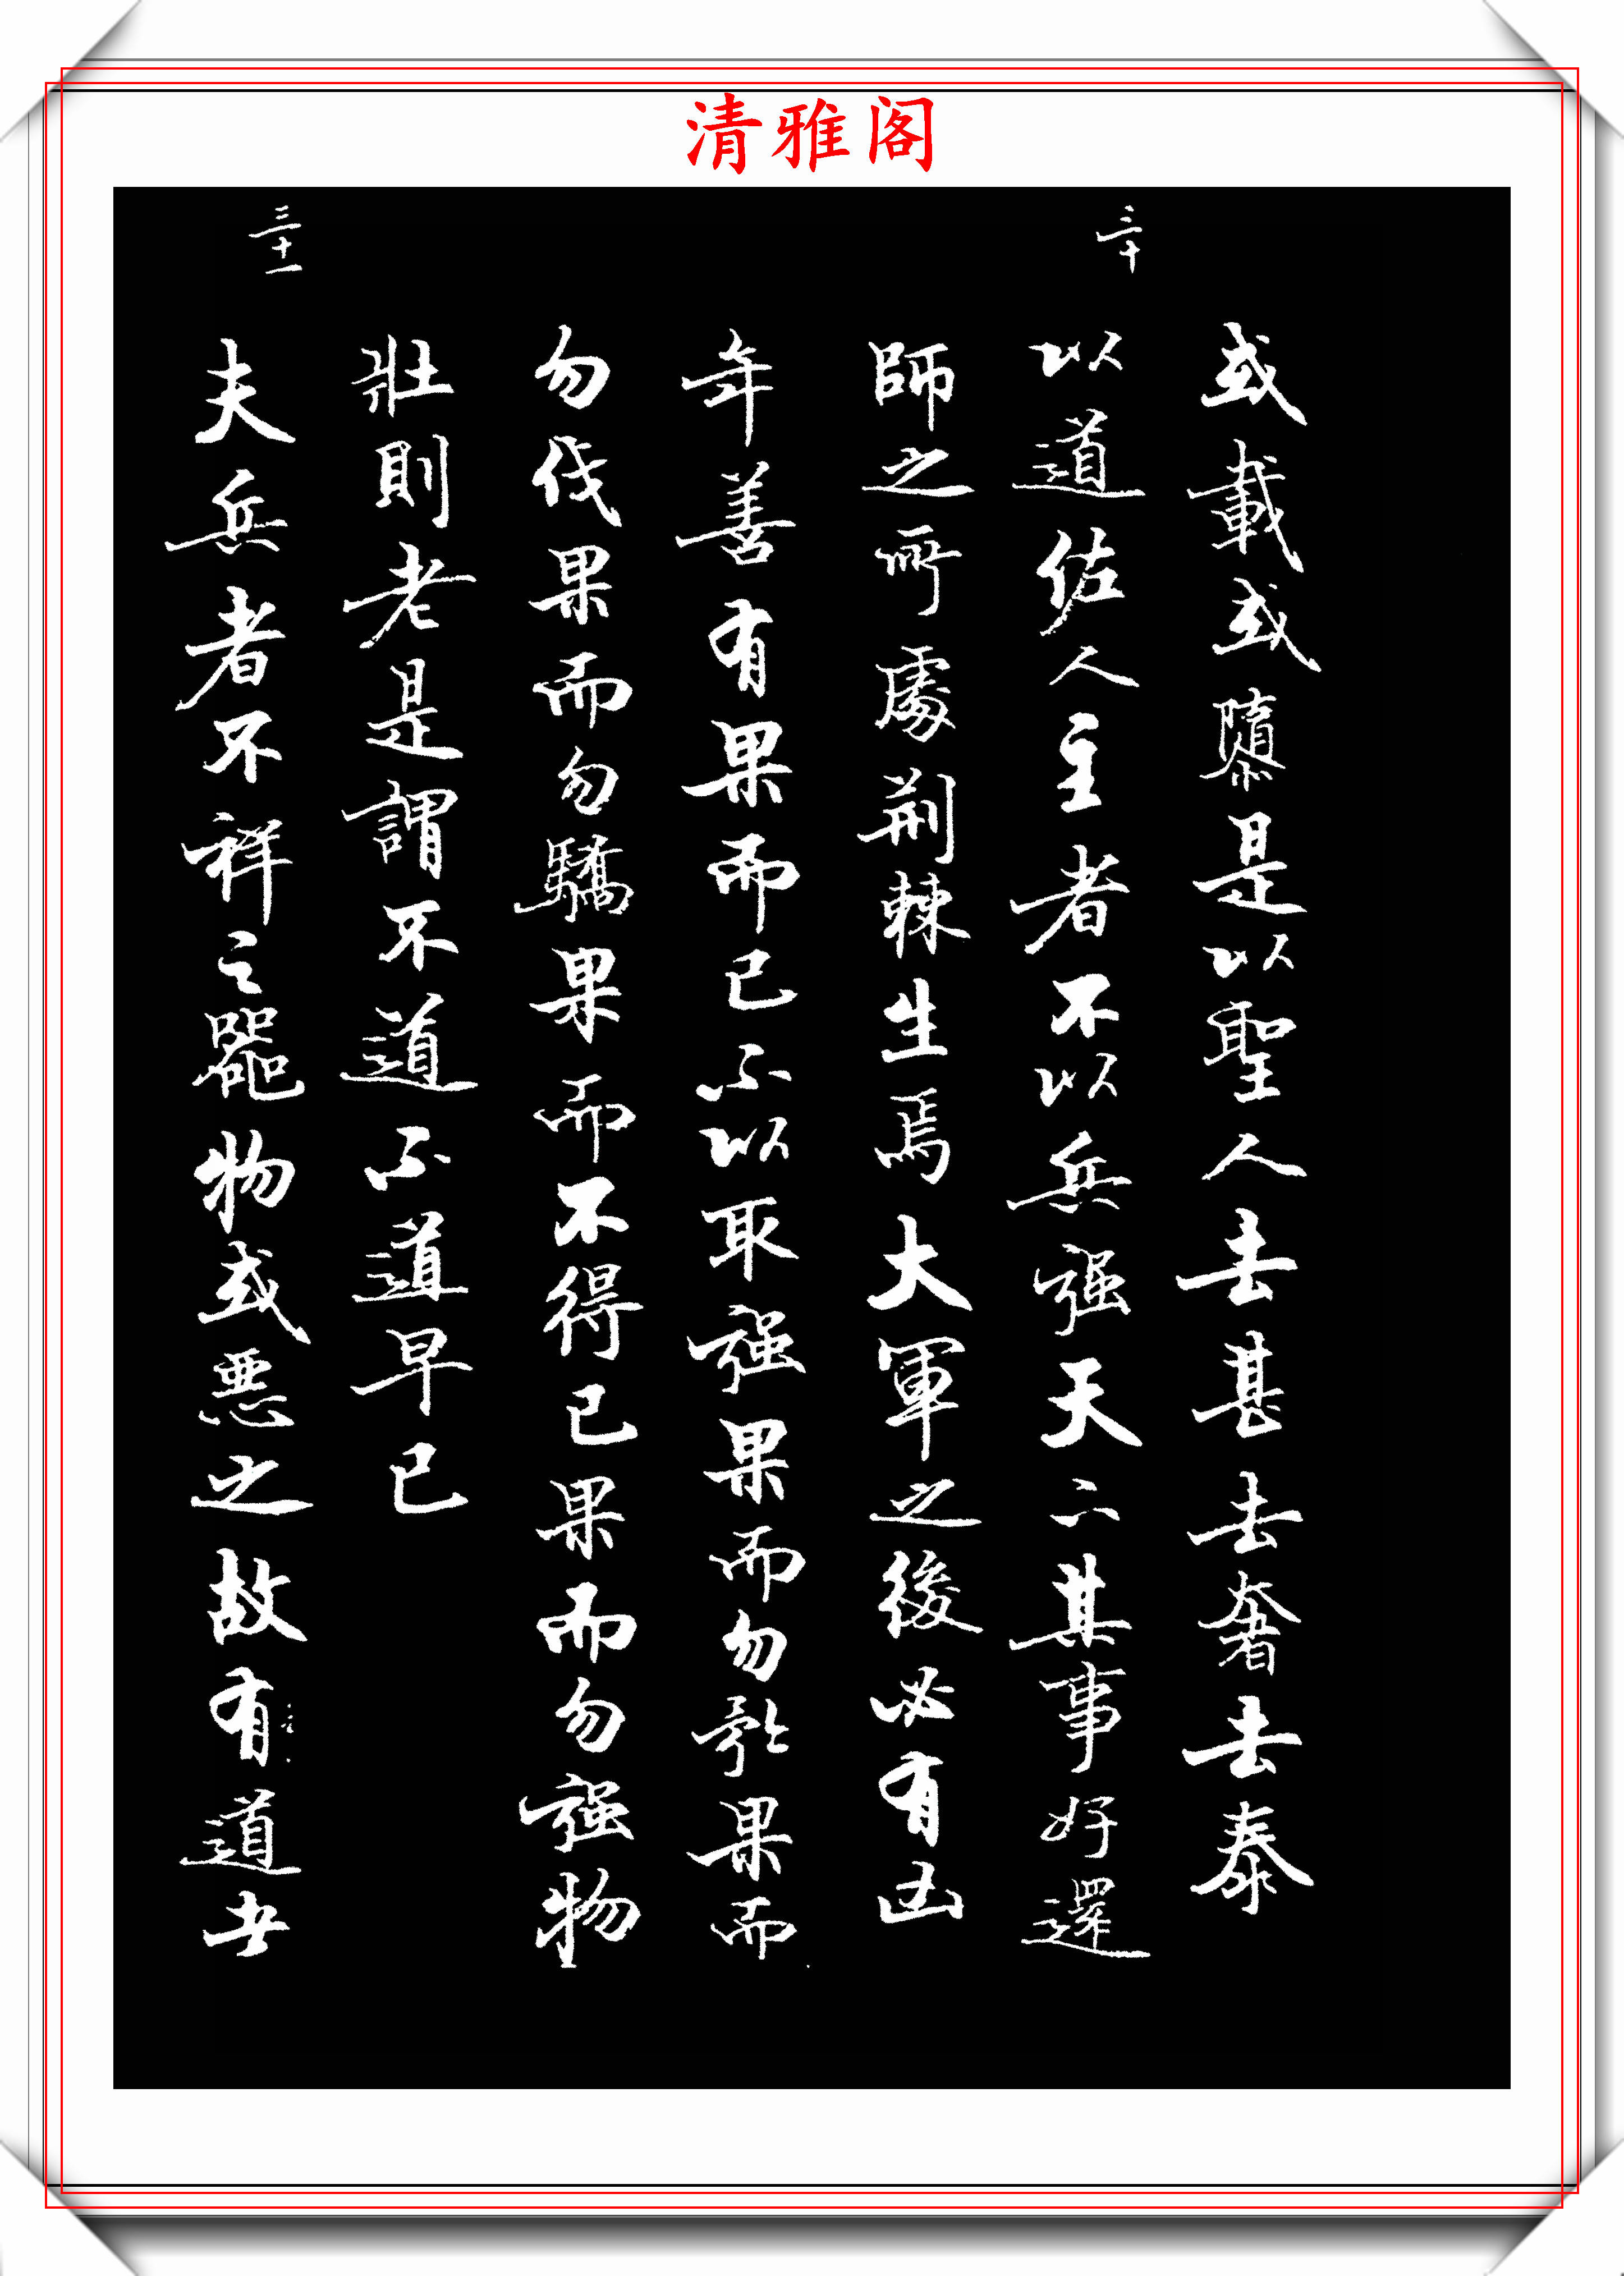 清雅阁
或載或隳是以聖人去甚去奢去泰
三十
以道佐人主者不以兵强天下其事好還
師之所處荆棘生焉大軍之後必有凶
年善有果而已不以取强果而勿矜果而
勿伐果而勿驕果而不得已果而勿强物
壯則老是謂不道不道早已
三十一
夫兵者不祥之器物或惡之故有道士